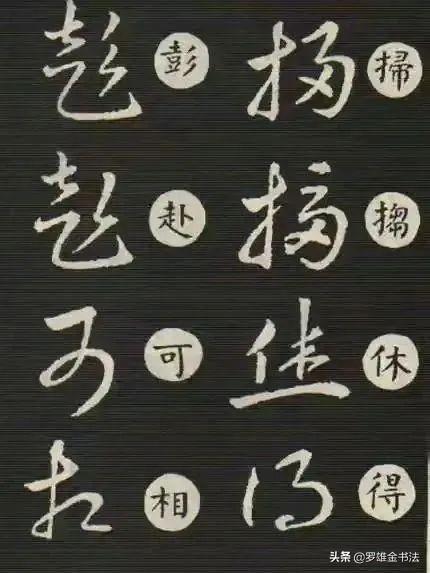 彭 彭 掃 掃
赴 赴 搊 搊
可 可 休 休
相 相 得 得
头条 @罗雄金书法